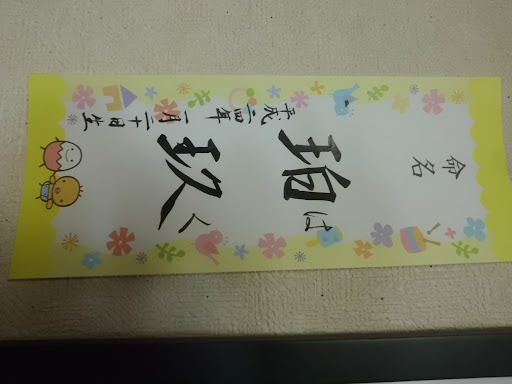 命名
珀玖
はく
平成二四年一月二十日生